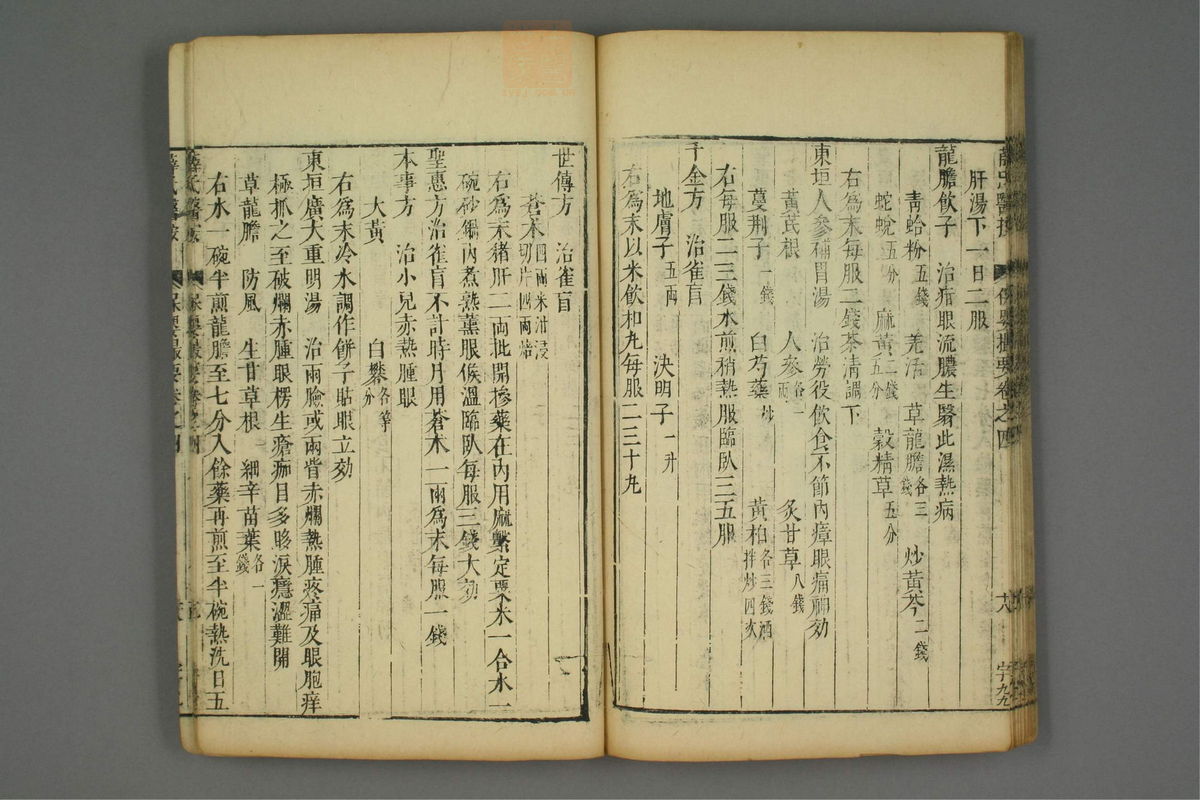 肝湯下一日二服
龍膽飲子　治疳眼流膿生翳此濕熱病
靑蛤粉五錢　羌活　草龍膽各三錢　炒黃芩二錢
蛇蛻五分　麻黃二錢五分　穀精草五分
右爲末每服二錢茶清調下
東垣人參補胃湯　治勞役飲食不節內瘴眼痛神効
黃芪根　人參各一兩　炙甘草八錢
蔓荆子一錢　白芍藥炒　黃柏各三錢酒拌炒四次
右每服二三錢水煎稍熱服臨臥三五服
千金方　治雀盲
地膚子五兩　決明子一升
右爲末以米飲和丸每服二三十丸
世傳方　治雀盲
蒼朮四兩米泔浸切片四兩焙
右爲末猪肝二兩批開摻藥在內用麻繫定粟米一合水一
碗砂鍋內煮熟薰眼候溫臨臥每服三錢大効
聖惠方治雀盲不計時月用蒼朮一兩爲末每服一錢
本事方　治小兒赤熱腫眼
大黃　白礬各等分
右爲末冷水調作餅子貼眼立効
東垣廣大重明湯　治兩瞼或兩眥赤爛熱腫疼痛及眼胞痒
極抓之至破爛赤腫眼楞生瘡痂目多眵淚癮澀難開
草龍膽　防風　生甘草根　細辛苗葉各一錢
右水一碗半煎龍膽至七分入餘藥再煎至半碗熱洗日五